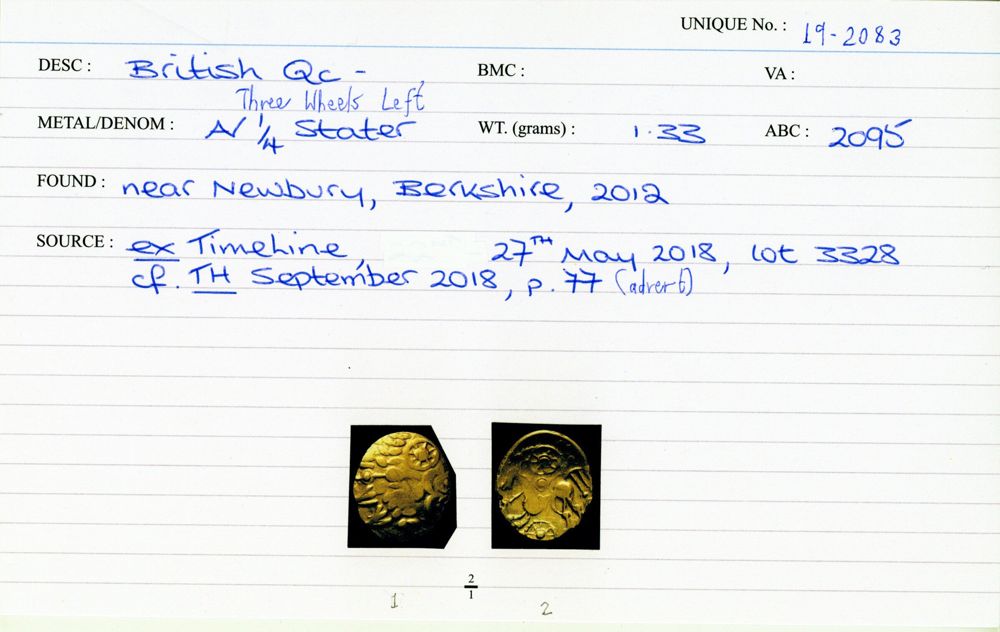 UNIQUE No. : 19-2083
DESC : British Qc - BMC : VA :
Three Wheels Left
METAL/DENOM : A/ 1/4 Stater WT. (grams) : 1.33 ABC : 2095
FOUND : near Newbury, Berkshire, 2012
SOURCE : ex TimeLine, 27TH May 2018, lot 3328
cf. TH September 2018, p. 77 (advert)
2/1
1 2